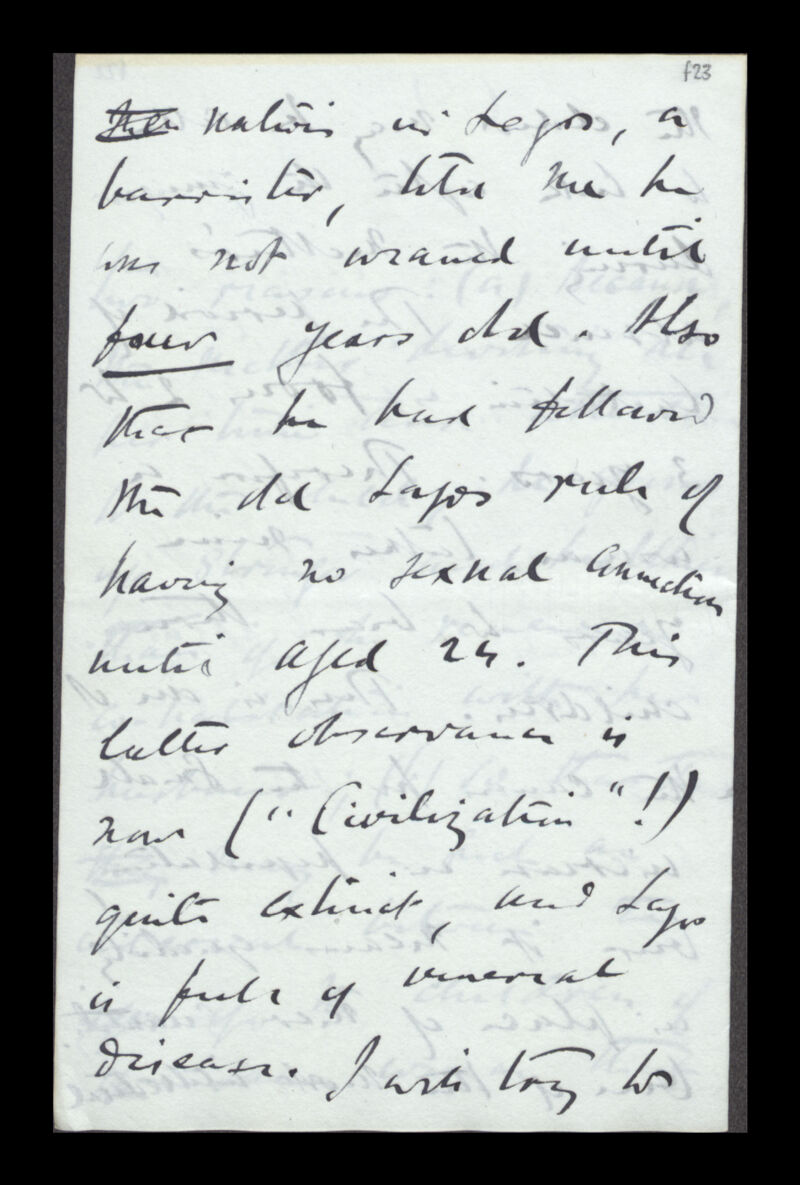 f23
natives in Lagos, a
barrister, told me he
was not weaned until
four years old. Also
that he had followed
the old Lagos rule of
having no sexual connection
until aged 24. This
latter observance is
now ("Civilization"!)
quite extinct, and Lagos
is full of venereal
disease. I will try to